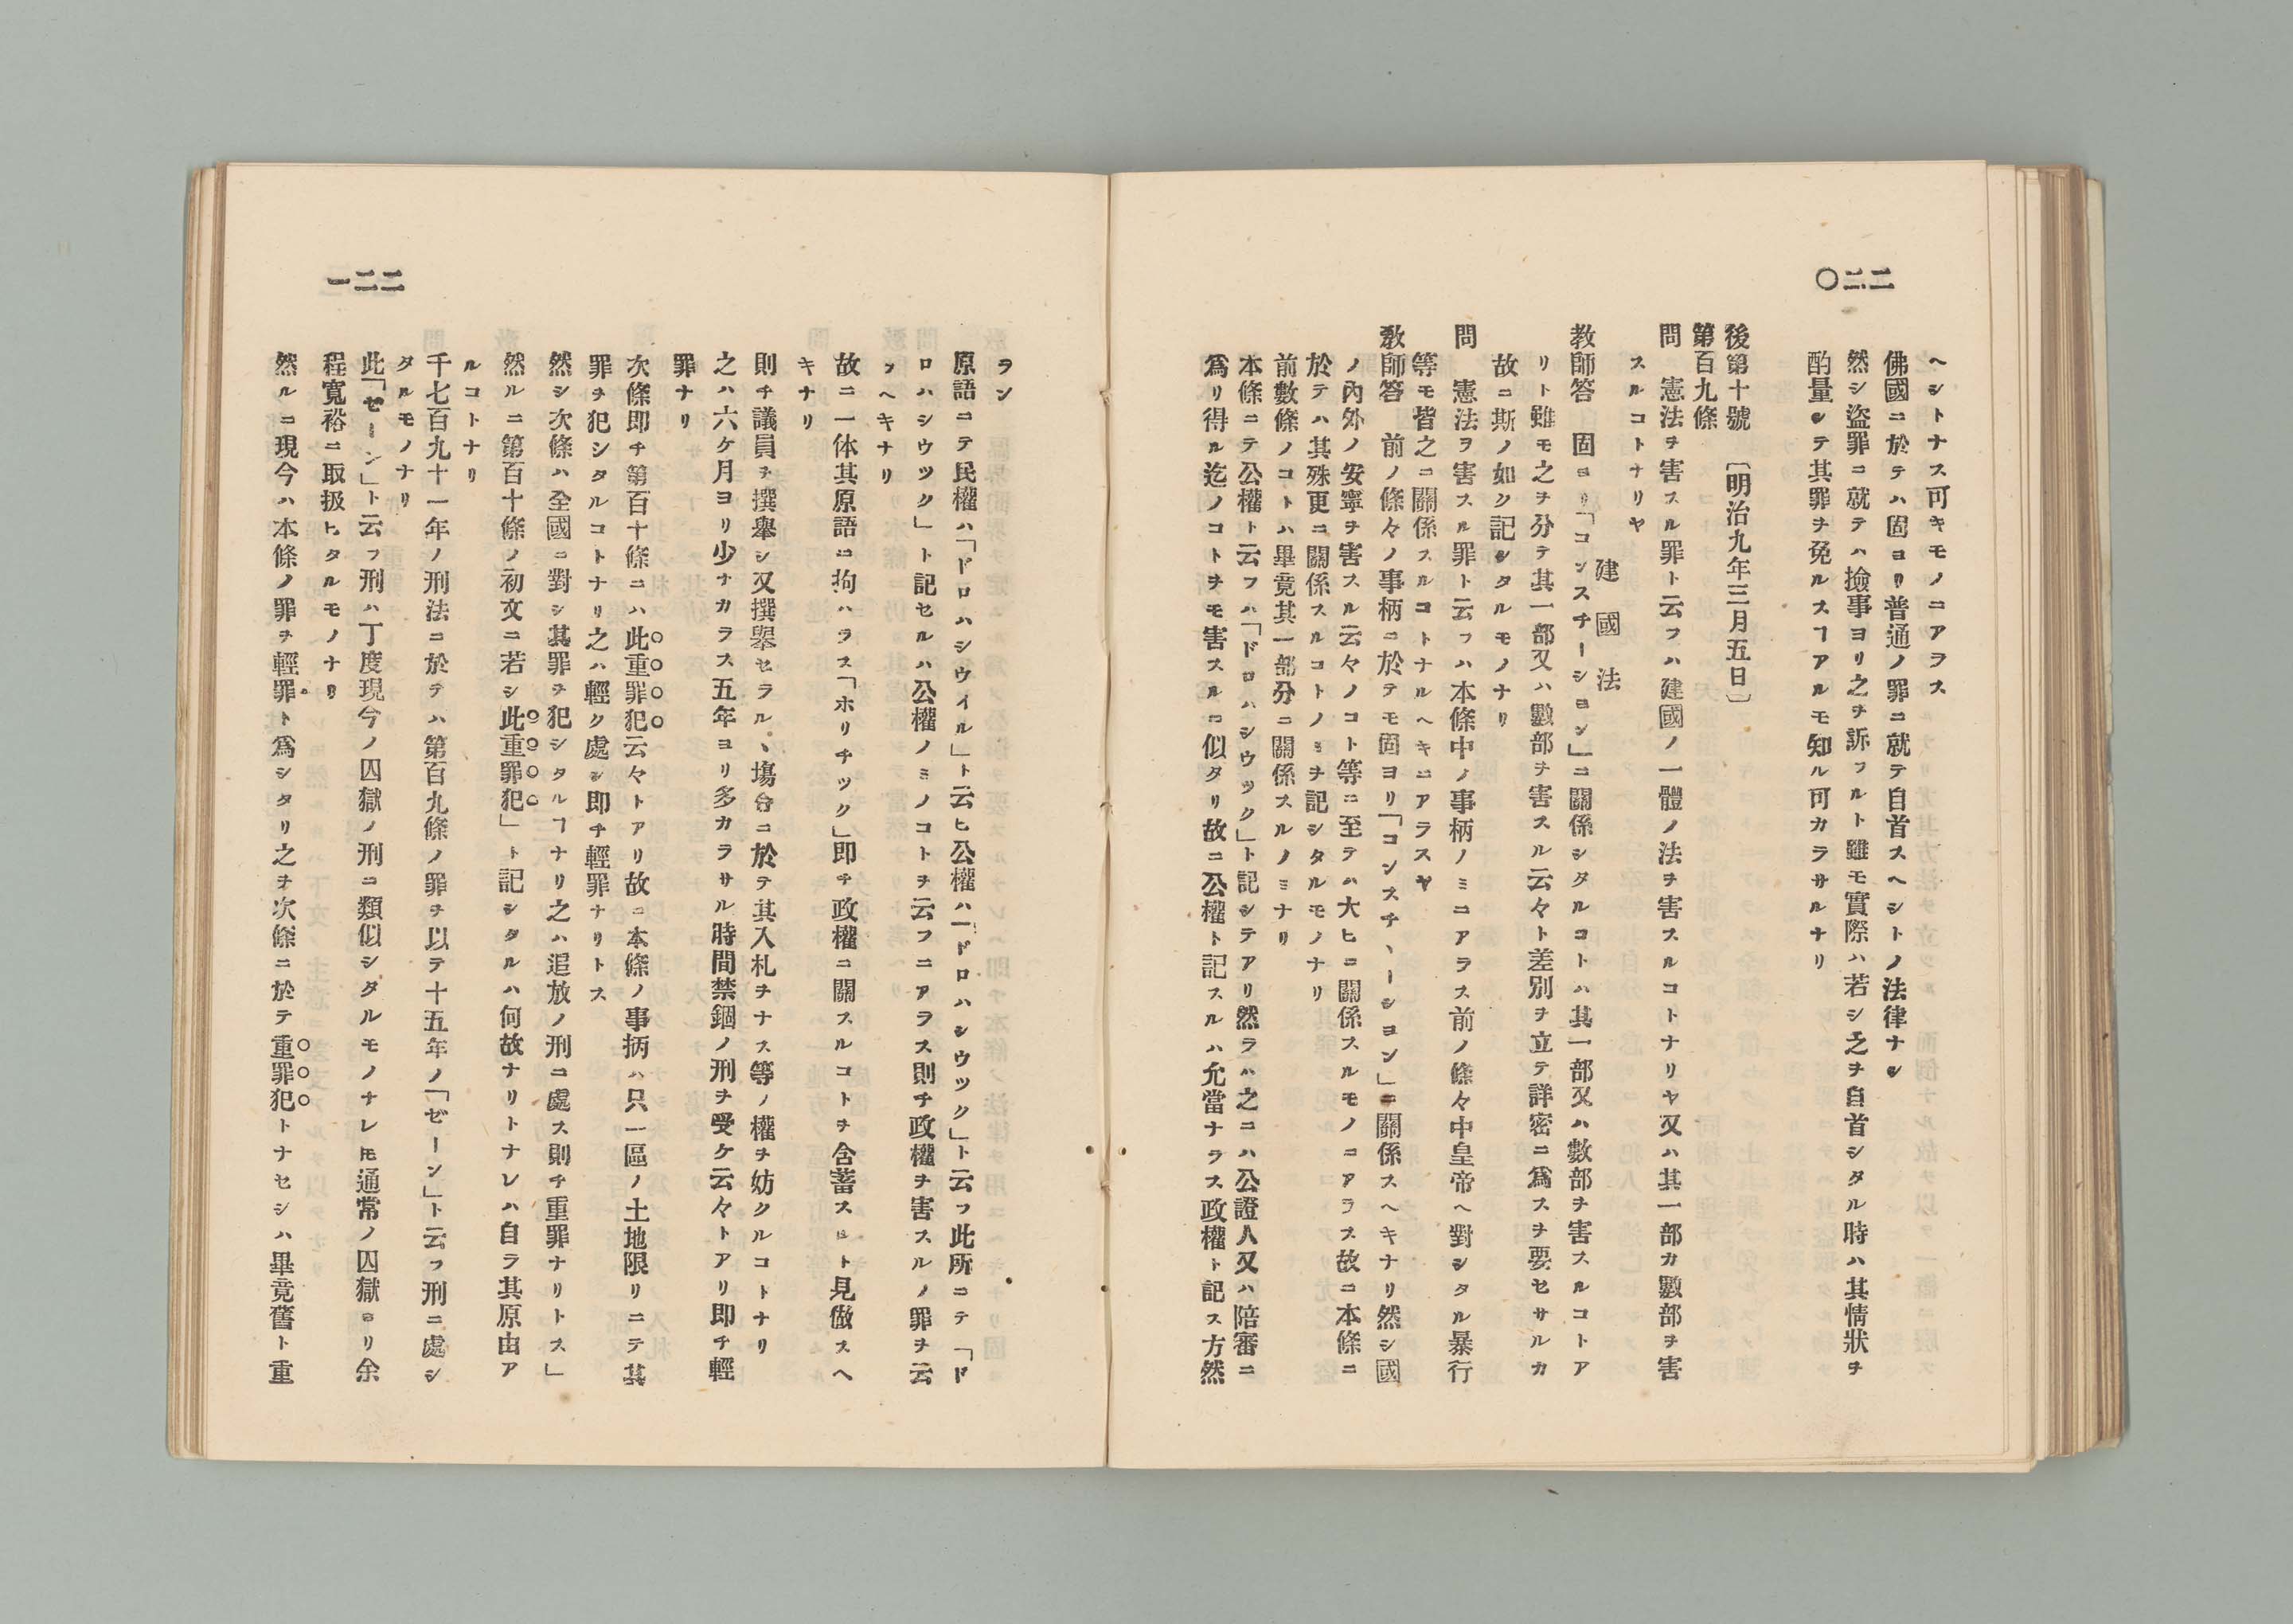 二二〇
ヘシトナス可キモノニアラス
佛國ニ於テハ固ヨリ普通ノ罪ニ就テ自首スヘシトノ法律ナシ
然シ盜罪ニ就テハ撿事ヨリ之ヲ訴フルト雖モ實際ハ若シ之ヲ自首シタル時ハ其情狀ヲ
酌量シテ其罪ヲ免ルスヿアルモ知ル可カラサルナリ
後第十號　〔明治九年三月五日〕
第百九條
問　憲法ヲ害スル罪ト云フハ建國ノ一體ノ法ヲ害スルコトナリヤ又ハ其一部カ數部ヲ害
スルコトナリヤ
建國法
教師答　固ヨリ「コンスチーシヨン」ニ關係シタルコトハ其一部又ハ數部ヲ害スルコトア
リト雖モ之ヲ分テ其一部又ハ數部ヲ害スル云々ト差別ヲ立テ詳密ニ爲スヲ要セサルカ
故ニ斯ノ如ク記シタルモノナリ
問　憲法ヲ害スル罪ト云フハ本條中ノ事柄ノミニアラス前ノ條々中皇帝ヘ對シタル暴行
等モ皆之ニ關係スルコトナルヘキニアラスヤ
敎師答　前ノ條々ノ事柄ニ於テモ固ヨリ「コンスチヽーシヨン」ニ關係スヘキナリ然シ國
ノ內外ノ安寧ヲ害スル云々ノコト等ニ至テハ大ヒニ關係スルモノニアラス故ニ本條ニ
於テハ其殊更ニ關係スルコトノミヲ記シタルモノナリ
前數條ノコトハ畢竟其一部分ニ關係スルノミナリ
本條ニテ公權ト云フハ「ドロハシウツク」ト記シテアリ然ラハ之ニハ公證人又ハ陪審ニ
爲リ得ル迄ノコトヲモ害スルニ似タリ故ニ公權ト記スルハ允當ナラス政權ト記ス方然
二二一
ラン
原語ニテ民權ハ「ドロハシウイル」ト云ヒ公權ハ「ドロハシウツク」ト云フ此所ニテ「ド
ロハシウツク」ト記セルハ公權ノミノコトヲ云フニアラス則チ政權ヲ害スルノ罪ヲ云
フヘキナリ
故ニ一体其原語ニ拘ハラス「ホリチツク」即チ政權ニ關スルコトヲ含蓄スヿト見做スヘ
キナリ
則チ議員ヲ撰擧シ又撰擧セラルヽ塲合ニ於テ其入札ヲナス等ノ權ヲ妨クルコトナリ
之ハ六ケ月ヨリ少ナカラス五年ヨリ多カラサル時間禁錮ノ刑ヲ受ケ云々トアリ即チ輕
罪ナリ
次條即チ第百十條ニハ此重罪犯云々トアリ故ニ本條ノ事柄ハ只一區ノ土地限リニテ其
罪ヲ犯シタルコトナリ之ハ輕ク處シ即チ輕罪ナリトス
然シ次條ハ全國ニ對シ其罪ヲ犯シタルヿナリ之ハ追放ノ刑ニ處ス則チ重罪ナリトス」
然ルニ第百十條ノ初文ニ若シ此重罪犯」ト記シタルハ何故ナリトナレハ自ラ其原由ア
ルコトナリ
千七百九十一年ノ刑法ニ於テハ第百九條ノ罪ヲ以テ十五年ノ「ゼーン」ト云フ刑ニ處シ
タルモノナリ
此「ゼーン」ト云フ刑ハ丁度現今ノ囚獄ノ刑ニ類似シタルモノナレ𪜈通常ノ囚獄ヨリ余
程寬裕ニ取扱ヒタルモノナリ
然ルニ現今ハ本條ノ罪ヲ輕罪ト爲シタリ之ヲ次條ニ於テ重罪犯トナセシハ畢竟舊ト重